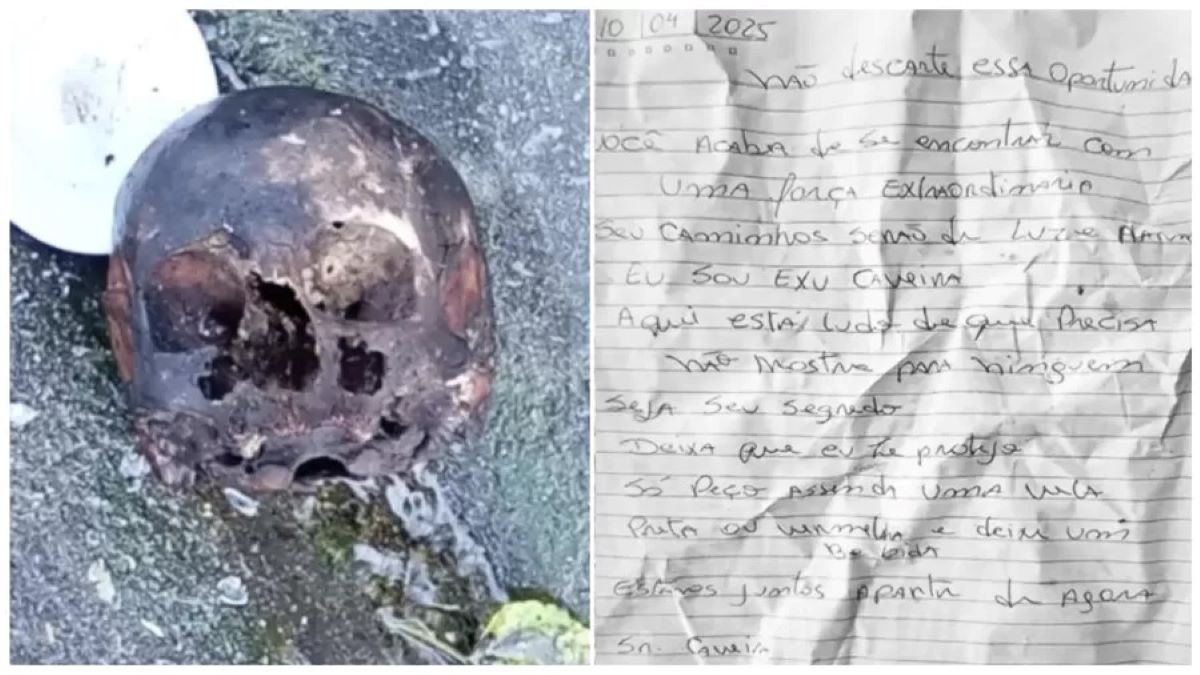 10 04 2025
Não descarte essa oportunida
Você acaba de se encontrar com
uma força extraordinario
Seu caminhos serão de luz e
Eu sou Exu Caveira
Aqui está tudo de que precisa
Não mostre para ninguem
Seja seu segredo
Deixa que eu te protejo
Só peço assenda uma vela
Preta ou vermelha e deixe um
Bebida
juntos aparti de agora
Sr. Caveira